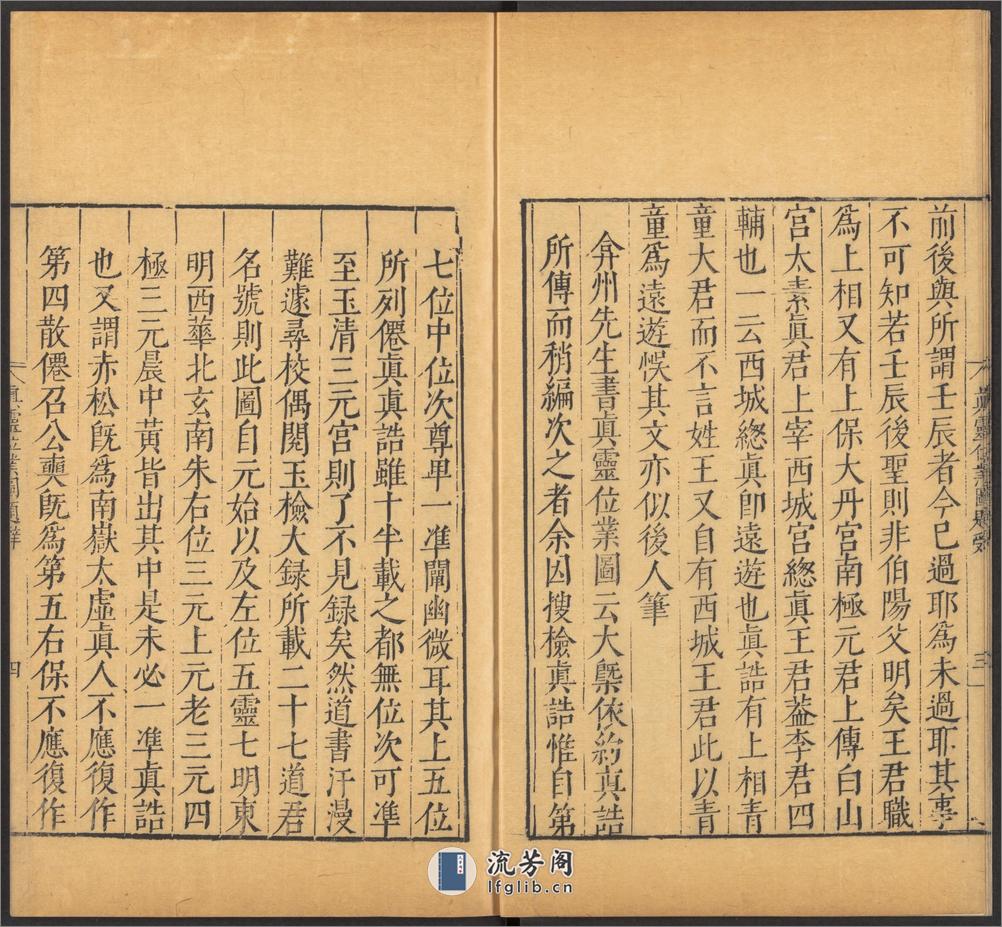 前後與所謂壬辰者今已過耶爲未過耶其事
不可知若壬辰後聖則非伯陽父明矣王君職
爲上相又有上保大丹宮南極元君上傳白山
宮太素眞君上宰西城宮緫眞王君葢李君四
輔也一云西城緫眞卽遠遊也眞誥有上相青
童大君而不言姓王又自有西城王君此以青
童爲遠遊悞其文亦似後人筆
弇州先生書眞靈位業圖云大槩依約眞誥
所傳而稍編次之者余因搜檢眞誥惟自第
眞靈位業圖題辭
三
七位中位次尊卑一準闡幽微耳其上五位
所列僊眞眞誥雖十半載之都無位次可準
至玉清三元宮則了不見録矣然道書汗漫
難遽尋校偶閱玉檢大録所載二十七道君
名號則此圖自元始以及左位五靈七明東
明西華北玄南朱右位三元上元老三元四
極三元晨中黃皆出其中是未必一準眞誥
也又謂赤松旣爲南嶽太虛眞人不應復作
第四散僊召公奭旣爲第五右保不應復作
眞靈位業圖題辭
四
流芳阁
lfglib.cn